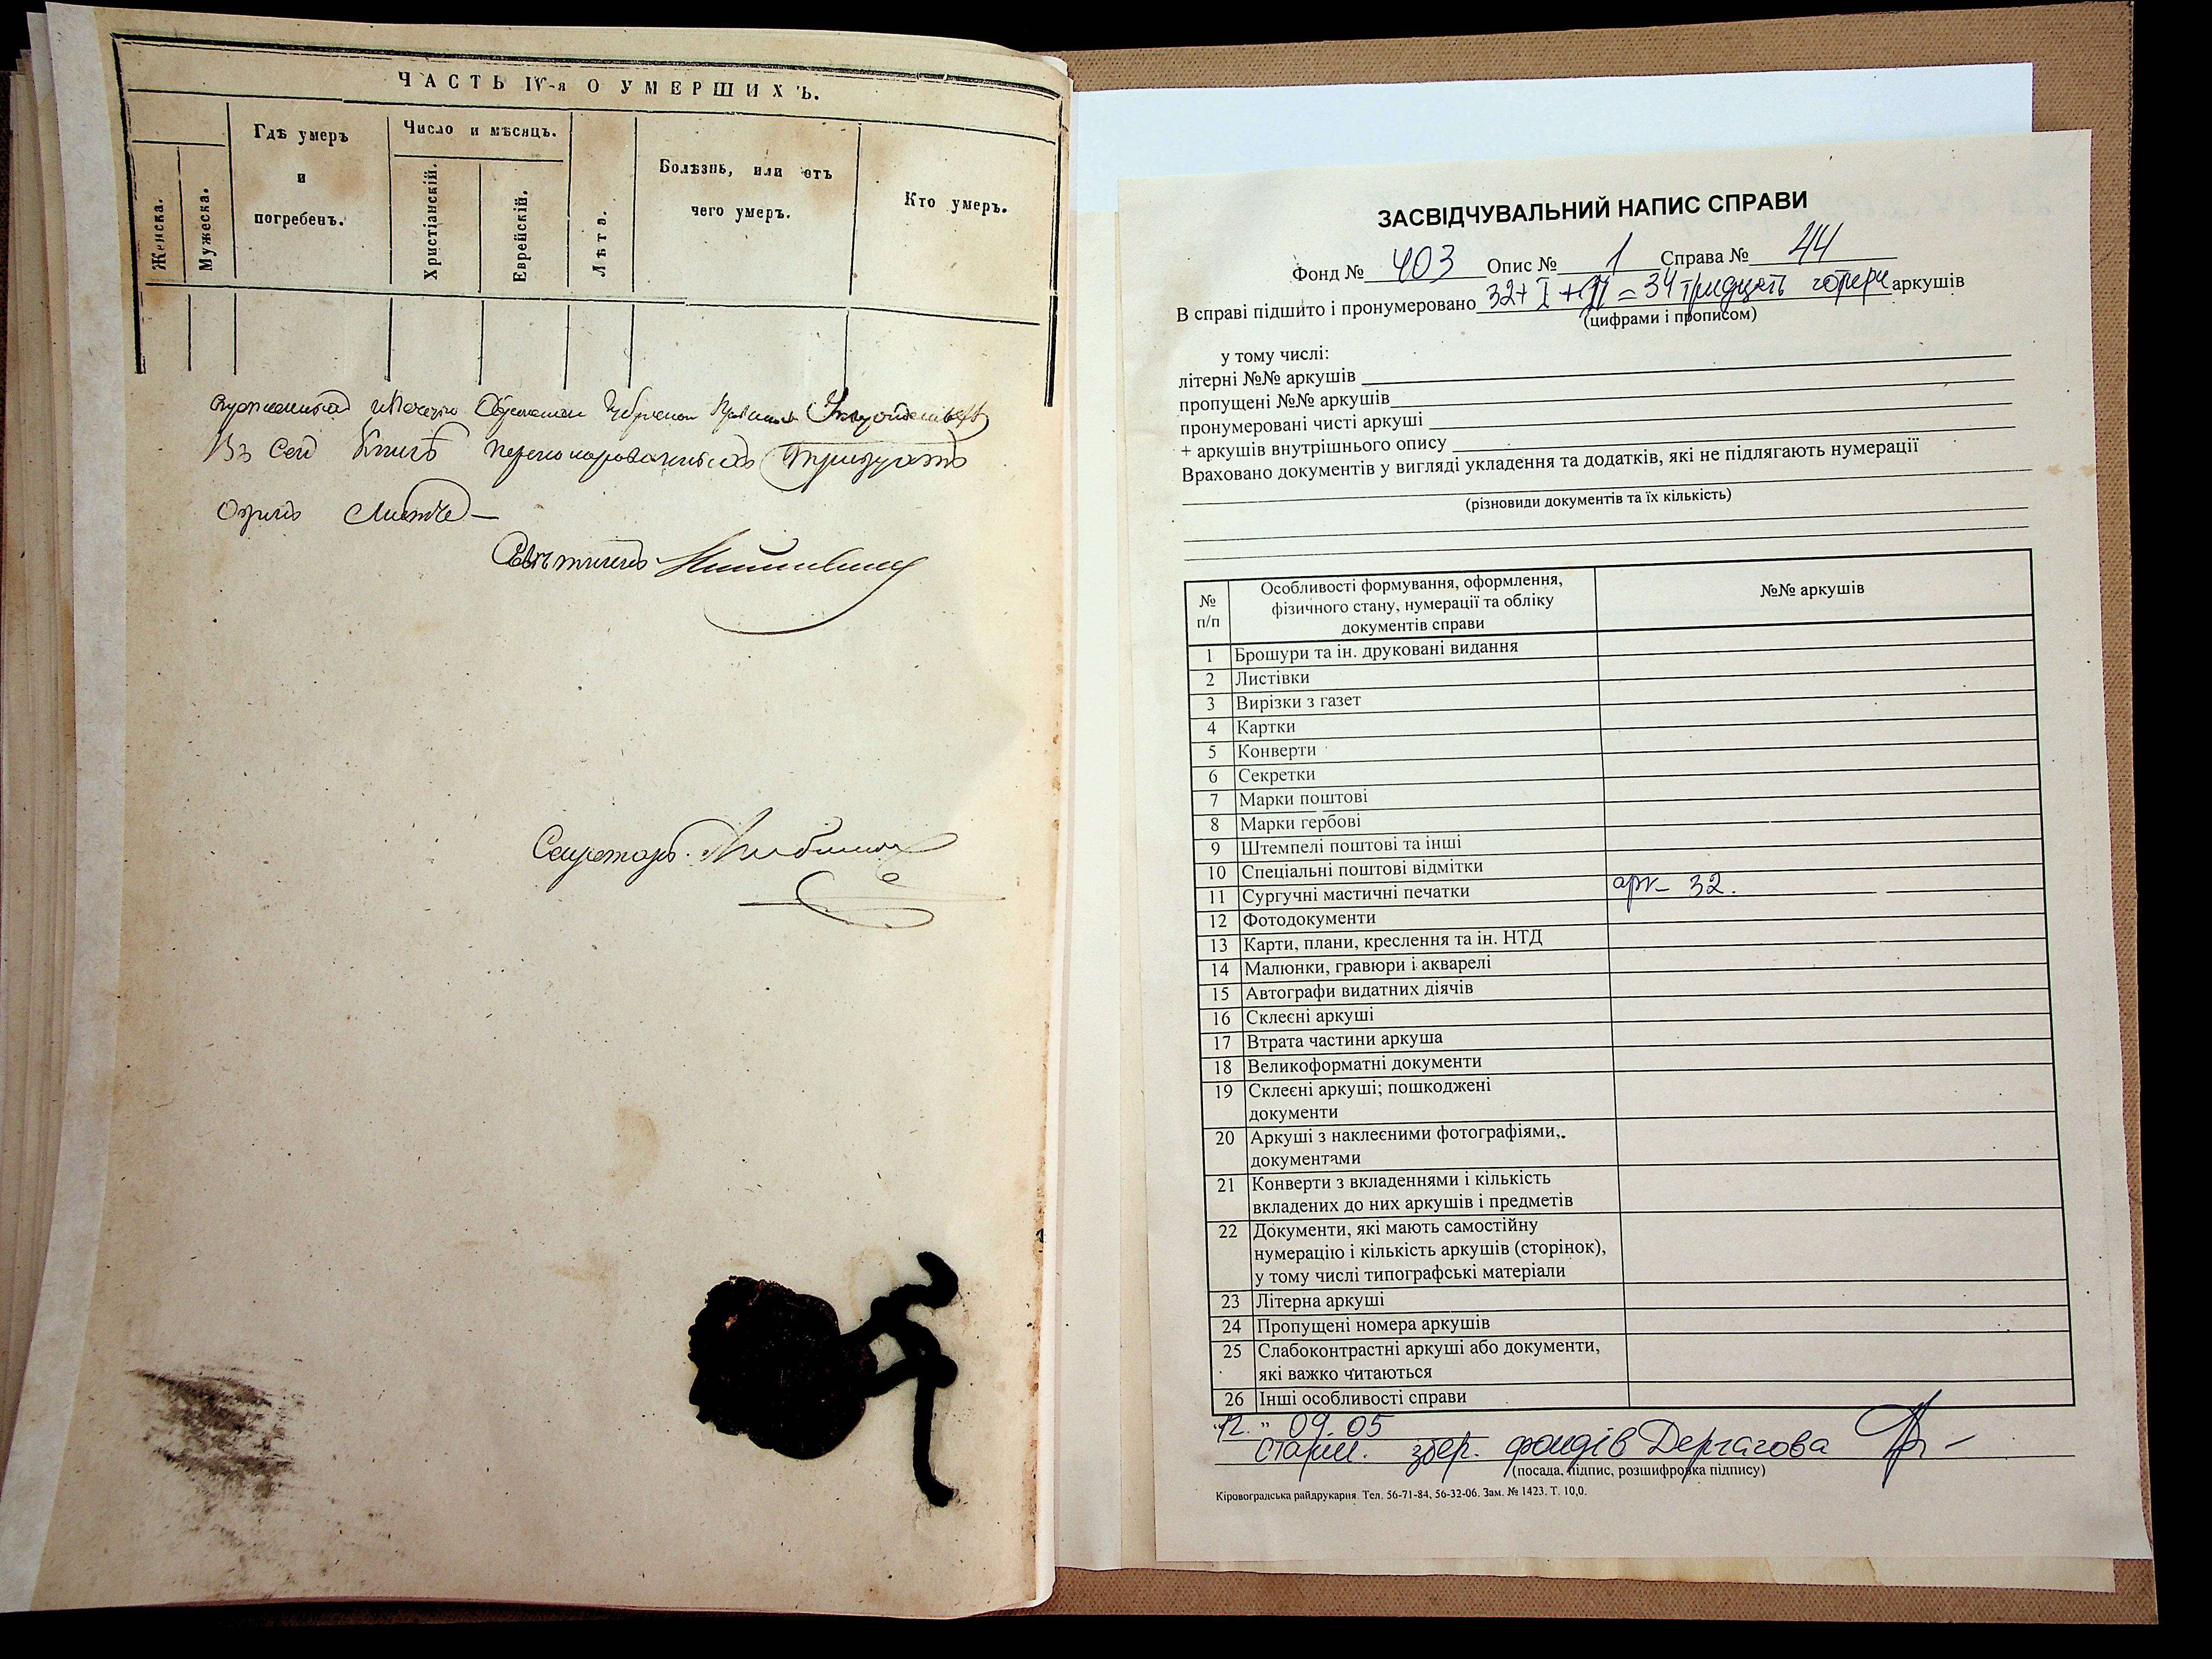 ЧАСТЬ IV-я О УМЕРШИХЪ.
Женска.
Мужеска.
Гдѣ умеръ
и
погребенъ.
Число и мѣсяцъ.
Христіанскій.
Еврейскій.
Лѣта.
Болѣзнь, или отъ
чего умеръ.
Кто умеръ.
Въ сей Книгѣ перенумерованныхъ тридцать
Одинъ Листъ
Совѣтникъ
Секретарь
ЗАСВІДЧУВАЛЬНИЙ НАПИС СПРАВИ
Фонд № 403 Опис № 1 Справа № 44
В справі підшито і пронумеровано 32+I+II=34 тридцять чотири аркушів
(цифрами і прописом)
у тому числі:
літерні №№ аркушів
пропущені №№ аркушів
пронумеровані чисті аркуші
+ аркушів внутрішнього опису
Враховано документів у вигляді укладення та додатків, які не підлягають нумерації
(різновиди документів та їх кількість)
№ п/п
Особливості формування, оформлення,
фізичного стану, нумерації та обліку
документів справи
№№ аркушів
1 Брошури та ін. друковані видання
2 Листівки
3 Вирізки з газет
4 Картки
5 Конверти
6 Секретки
7 Марки поштові
8 Марки гербові
9 Штемпелі поштові та інші
10 Спеціальні поштові відмітки
11 Сургучні мастичні печатки арк- 32.
12 Фотодокументи
13 Карти, плани, креслення та ін. НТД
14 Малюнки, гравюри і акварелі
15 Автографи видатних діячів
16 Склеєні аркуші
17 Втрата частини аркуша
18 Великоформатні документи
19 Склеєні аркуші; пошкоджені
документи
20 Аркуші з наклеєними фотографіями,.
документами
21 Конверти з вкладеннями і кількість
вкладених до них аркушів і предметів
22 Документи, які мають самостійну
нумерацію і кількість аркушів (сторінок),
у тому числі типографські матеріали
23 Літерна аркуші
24 Пропущені номера аркушів
25 Слабоконтрастні аркуші або документи,
які важко читаються
26 Інші особливості справи
"12." 09. 05
старш. збер. фондів Дергачова
(посада, підпис, розшифровка підпису)
Кіровоградська райдрукарня. Тел. 56-71-84, 56-32-06. Зам. № 1423. Т. 10,0.